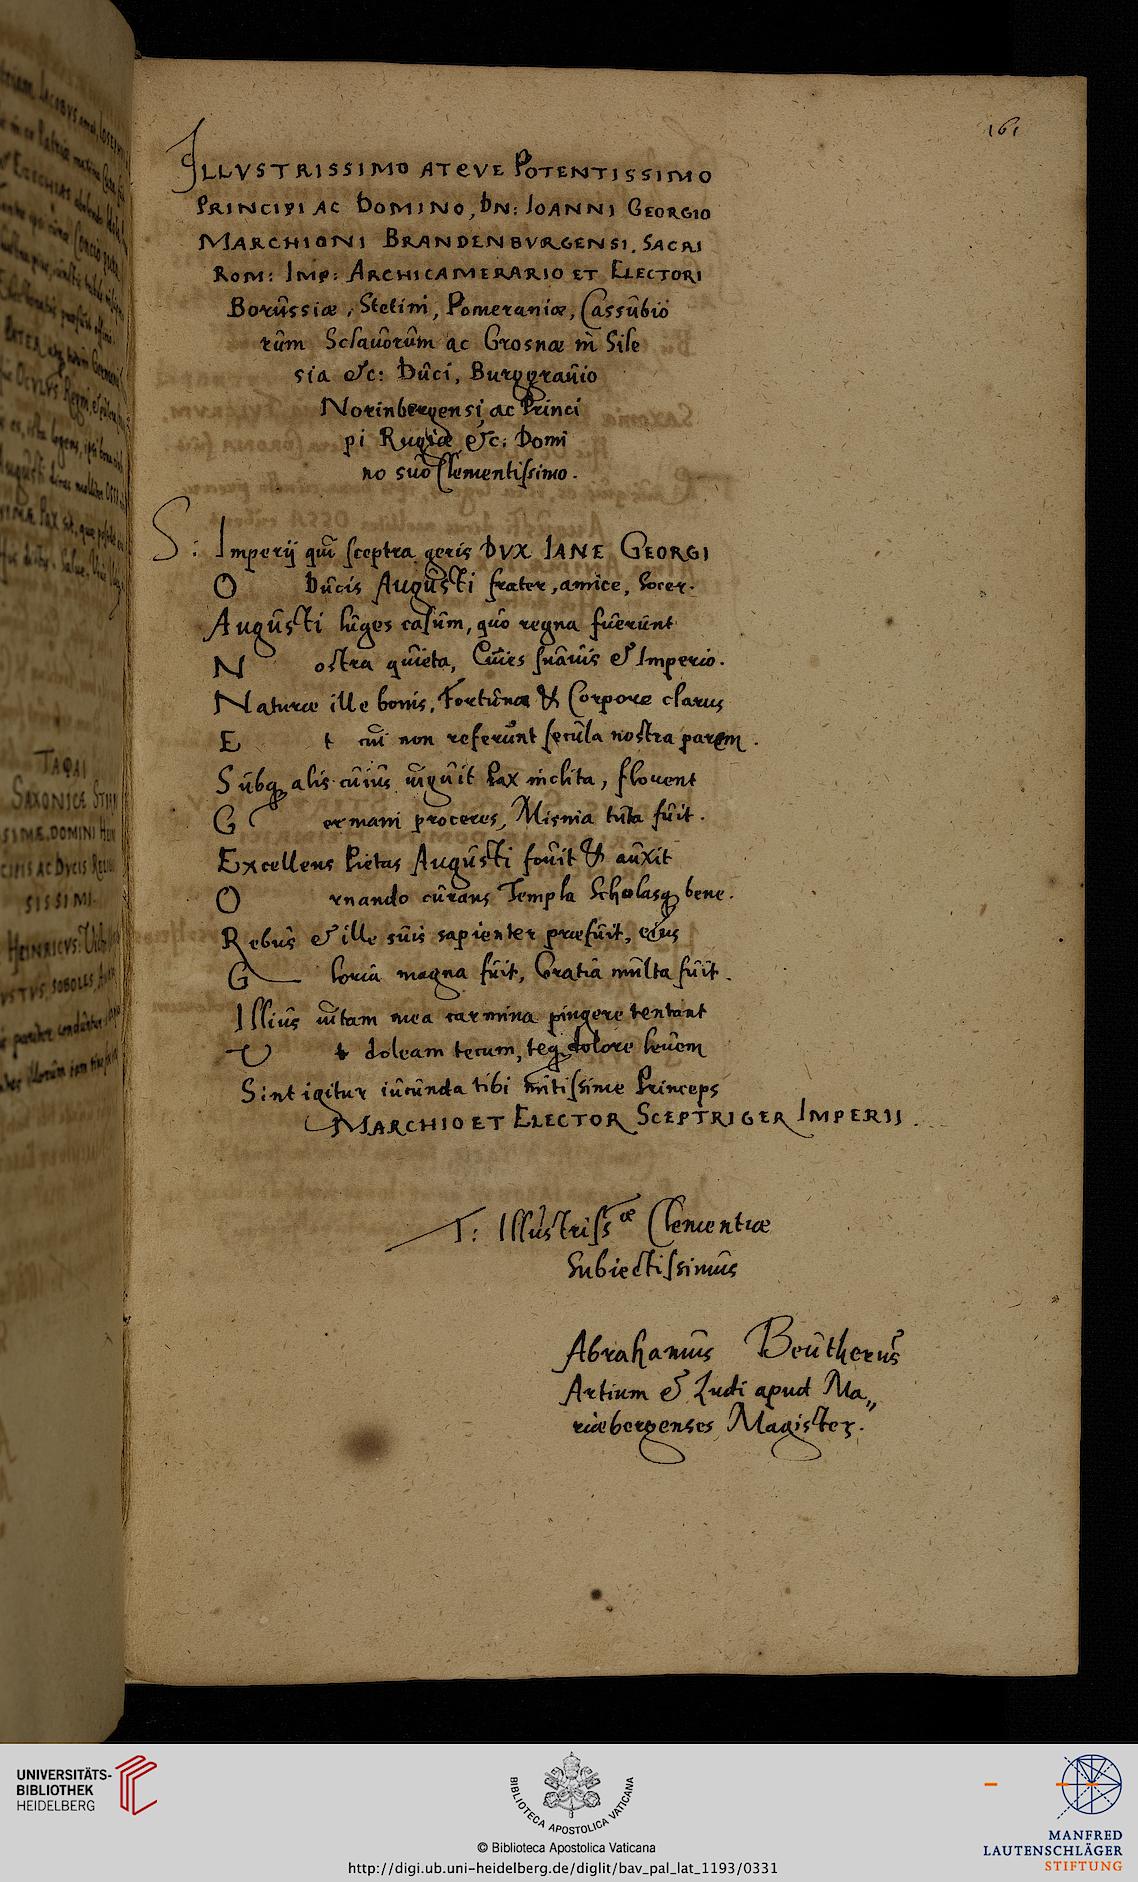 161
ILLVSTRISSIMO ATQVE POTENTISSIMO
PRINCIPI AC DOMINO, DN: IOANNI GEORGIO
MARCHIONI BRANDENBVRGENSI, SACRI
ROM: IMP: ARCHICAMERARIO ET ELECTORI
Borussiæ, Stetini, Pomeraniæ, Cassubio
rum Sclauorum ac Crosnæ in Sile
sia &c: Duci, Burggrauio
Norinbergensi ac Princi
pi Rugiæ &c: Domi
no suo Clementissimo.
S: Imperij qui sceptra geris DVX IANE GEORGI
O Ducis Augusti frater, amice, Socer.
Augusti luges casum, quo regna fuerunt
N ostra quieta, Ciues suauis & Imperio.
Naturæ ille bonis, Fortunæ & Corpore clarus
E t cui non referunt secula nostra parem.
Subq alis cuius uiguit Pax inclita, florent
G ermani proceres, Misnia tuta fuit.
Excellens Pietas Augusti fouit & auxit
O rnando curans Templa Scholasq bene.
Rebus & ille suis sapienter præfuit, eius
G loria magna fuit, Gratia multa fuit.
Illius uitam mea carmina pingere tentant
V t doleam tecum, teq dolore leuem
Sint igitur iucunda tibi mitissime Princeps
MARCHIO ET ELECTOR SCEPTRIGER IMPERII.
T: Illustrissæ Clementiæ
Subiectissimus
Abrahamus Beutherus
Artium & Ludi apud Ma„
riæbergenses Magister.
TAPAI
SAXONICÆ
SIMÆ, DOMINI
CIPIS AC DVCIS
SISSIMI
HEINRICVS
SOBOLES
UNIVERSITÄTS-
BIBLIOTHEK
HEIDELBERG
BIBLIOTECA APOSTOLICA VATICANA
© Biblioteca Apostolica Vaticana
http://digi.ub.uni-heidelberg.de/diglit/bav_pal_lat_1193/0331
MANFRED
LAUTENSCHLÄGER
STIFTUNG